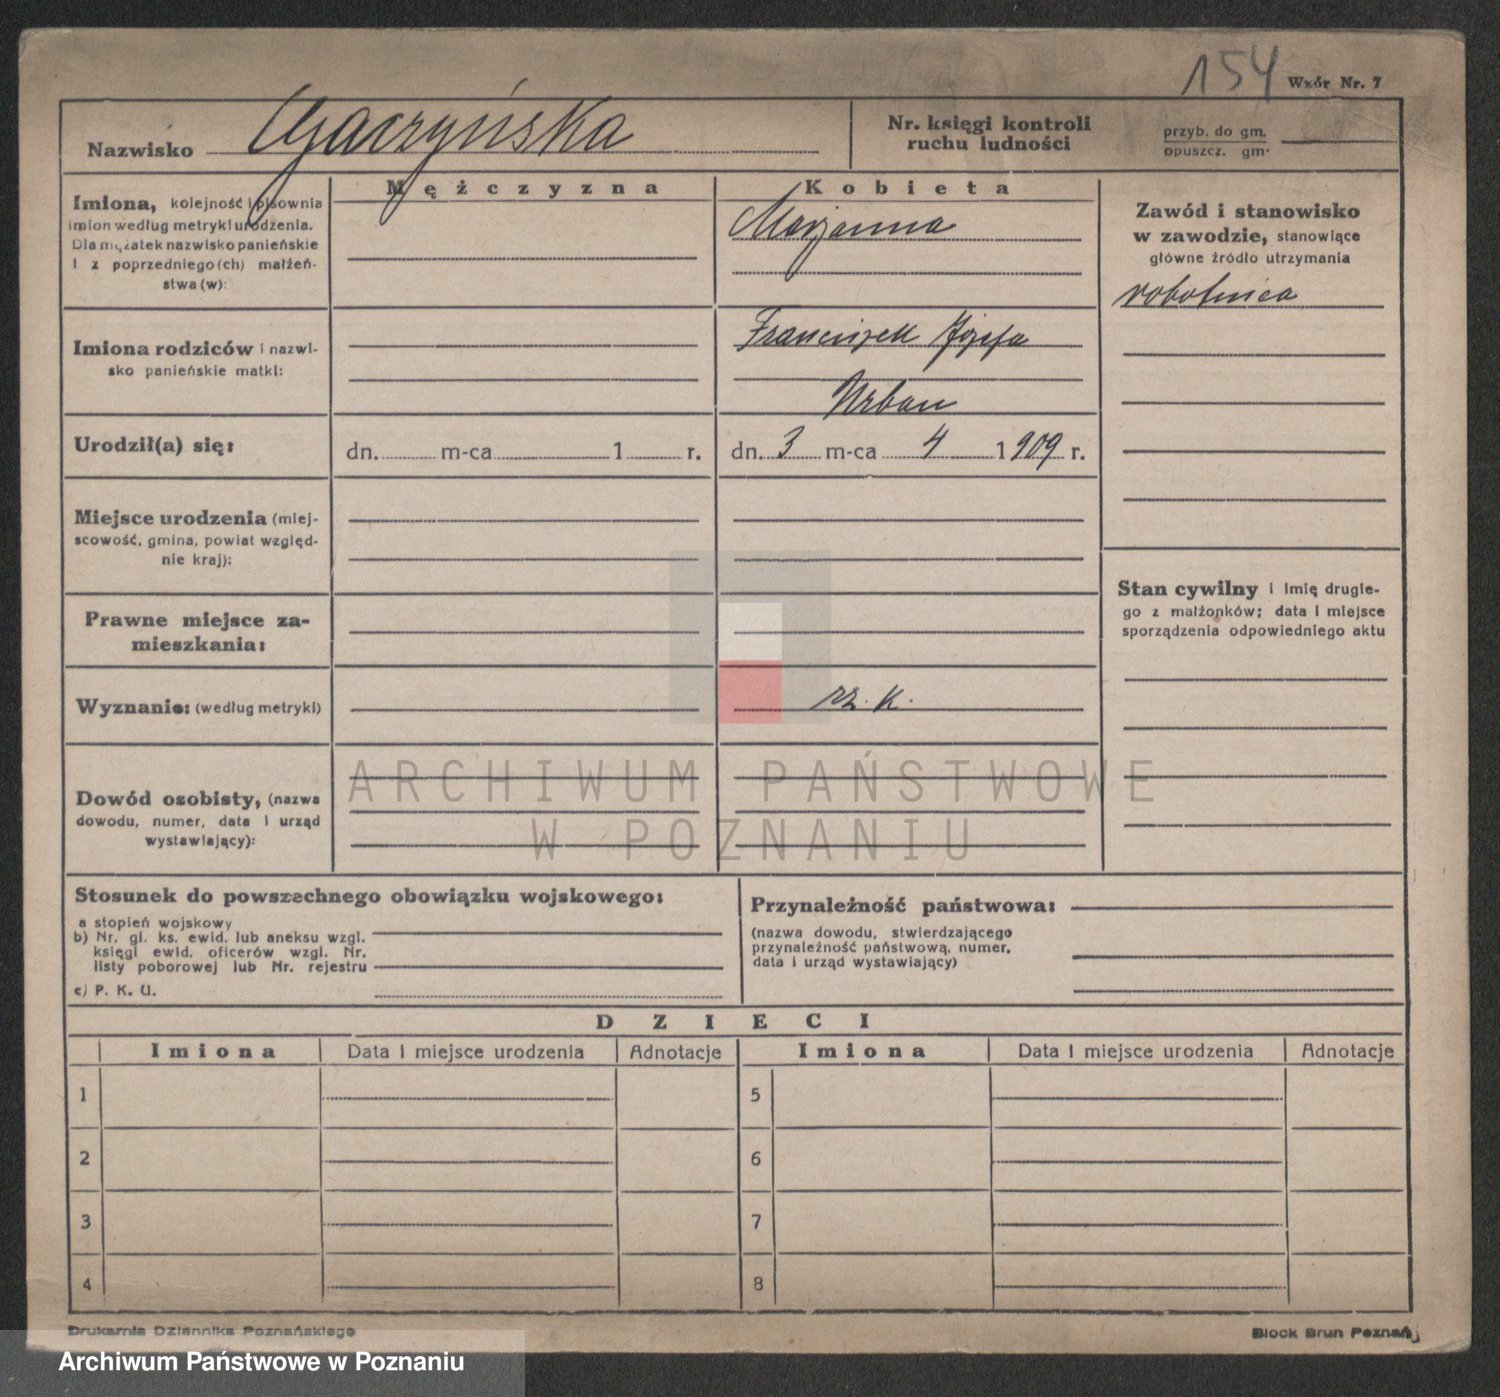 154 Wzór Nr. 7
Nazwisko Gaczyńska
Nr. księgi kontroli
ruchu ludności
przyb. do gm.
opuszcz. gm.
Mężczyzna
Kobieta
Imiona, kolejność i pisownia
imion według metryki urodzenia.
Dla mężatek nazwisko panieńskie
i z poprzedniego(ch) małżeń-
stwa(w):
Marjanna
Zawód i stanowisko
w zawodzie, stanowiące
główne źródło utrzymania
robotnica
Imiona rodziców i nazwi-
sko panieńskie matki:
Franciszek Józefa
Urban
Urodził(a) się:
dn. m-ca 1 r.
dn. 3 m-ca 4 1909 r.
Miejsce urodzenia (miej-
scowość, gmina, powiat względ-
nie kraj):
Stan cywilny i imię drugie-
go z małżonków; data i miejsce
sporządzenia odpowiedniego aktu
Prawne miejsce za-
mieszkania:
Wyznanie: (według metryki)
rz. k.
Dowód osobisty, (nazwa
dowodu, numer, data i urząd
wystawiający):
ARCHIWUM PAŃSTWOWE
W POZNANIU
Stosunek do powszechnego obowiązku wojskowego:
a stopień wojskowy
b) Nr. gl. ks. ewid. lub aneksu wzgl.
księgi ewid. oficerów wzgl. Nr.
listy poborowej lub Nr. rejestru
c) P. K. U.
Przynależność państwowa:
(nazwa dowodu, stwierdzającego
przynależność państwową, numer,
data i urząd wystawiający)
DZIECI
Imiona Data i miejsce urodzenia Adnotacje Imiona Data i miejsce urodzenia Adnotacje
1 5
2 6
3 7
4 8
Drukarnia Dziennika Poznańskiego
Block Brun Poznań
Archiwum Państwowe w Poznaniu